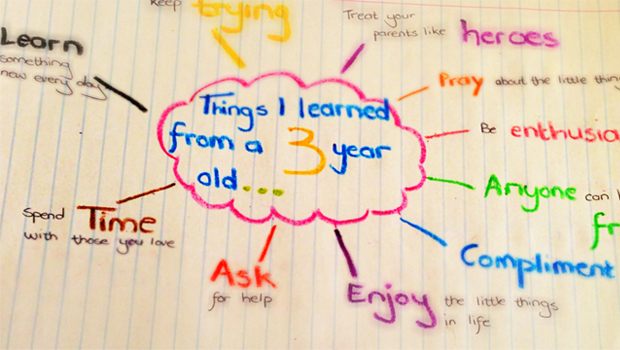 Keep
trying
Treat your
parents like heroes
Learn
something
new every day
Pray about the little
Be
Things I learned
from a 3 year
old...
Anyone can
Spend Time
with those you love
Compliment
Ask
for help
Enjoy the little things
in life